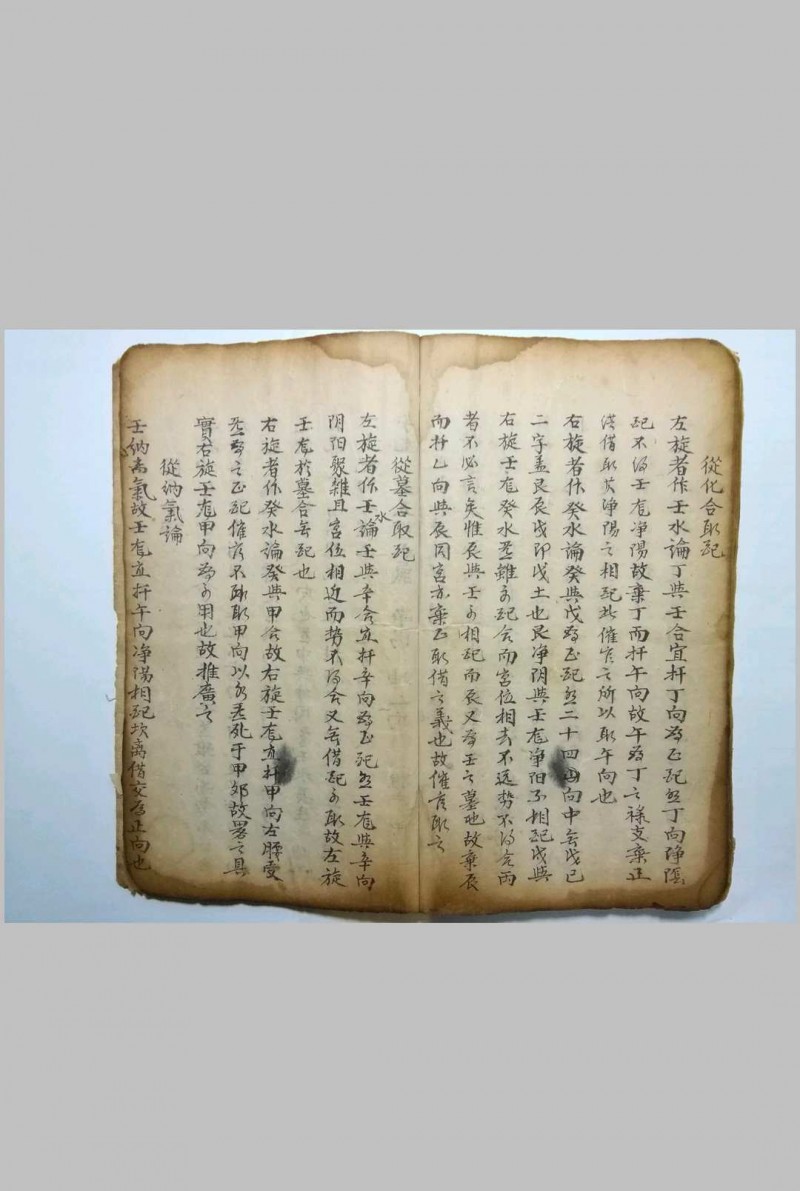 從化合取配
左旋者作壬水論丁與壬合宜扦丁向為正配然丁向凈陰
配不得壬龙凈陽故棄丁而扦午向故午為丁之祿支棄正
從借取其凈陽之相配此催官之所以取午向也
右旋者作癸水論癸與戊為正配然二十四向中無戊己
二字盖艮辰戌即戊土也艮凈阴與壬龙凈阳不相配戌與
右旋壬龙癸水虽可配合而宮位相去不远势不得合丙
者不必言矣惟辰與壬可相配而辰又為壬之墓地故棄辰
而扦乙向與辰同宮亦棄正取借之義也故催官取之
從墓合取配
左旋者作壬水論壬與辛合宜扦辛向為正配然壬龙與辛向
阴阳駁雜且宮位相近而勢不得合又無借配可取故左旋
壬龙於墓合無配也
右旋者作癸水論癸與甲合故右旋壬龙宜扦甲向左腰受
氣為之正配催官不取甲向以水死于甲卯故畧之具
實右旋壬龙甲向為可用也故推廣之
從納氣論
壬納离氣故壬龙宜扦午向凈陽相配坎离借交為正向也